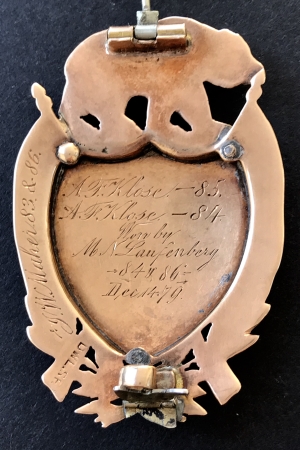 A. F. Klose — 83.
A. F. Klose — 84
Won by
M. N. Laufenberg
— 84 " 86 —
Dec. 14. 79.
Maher 83. & 85.